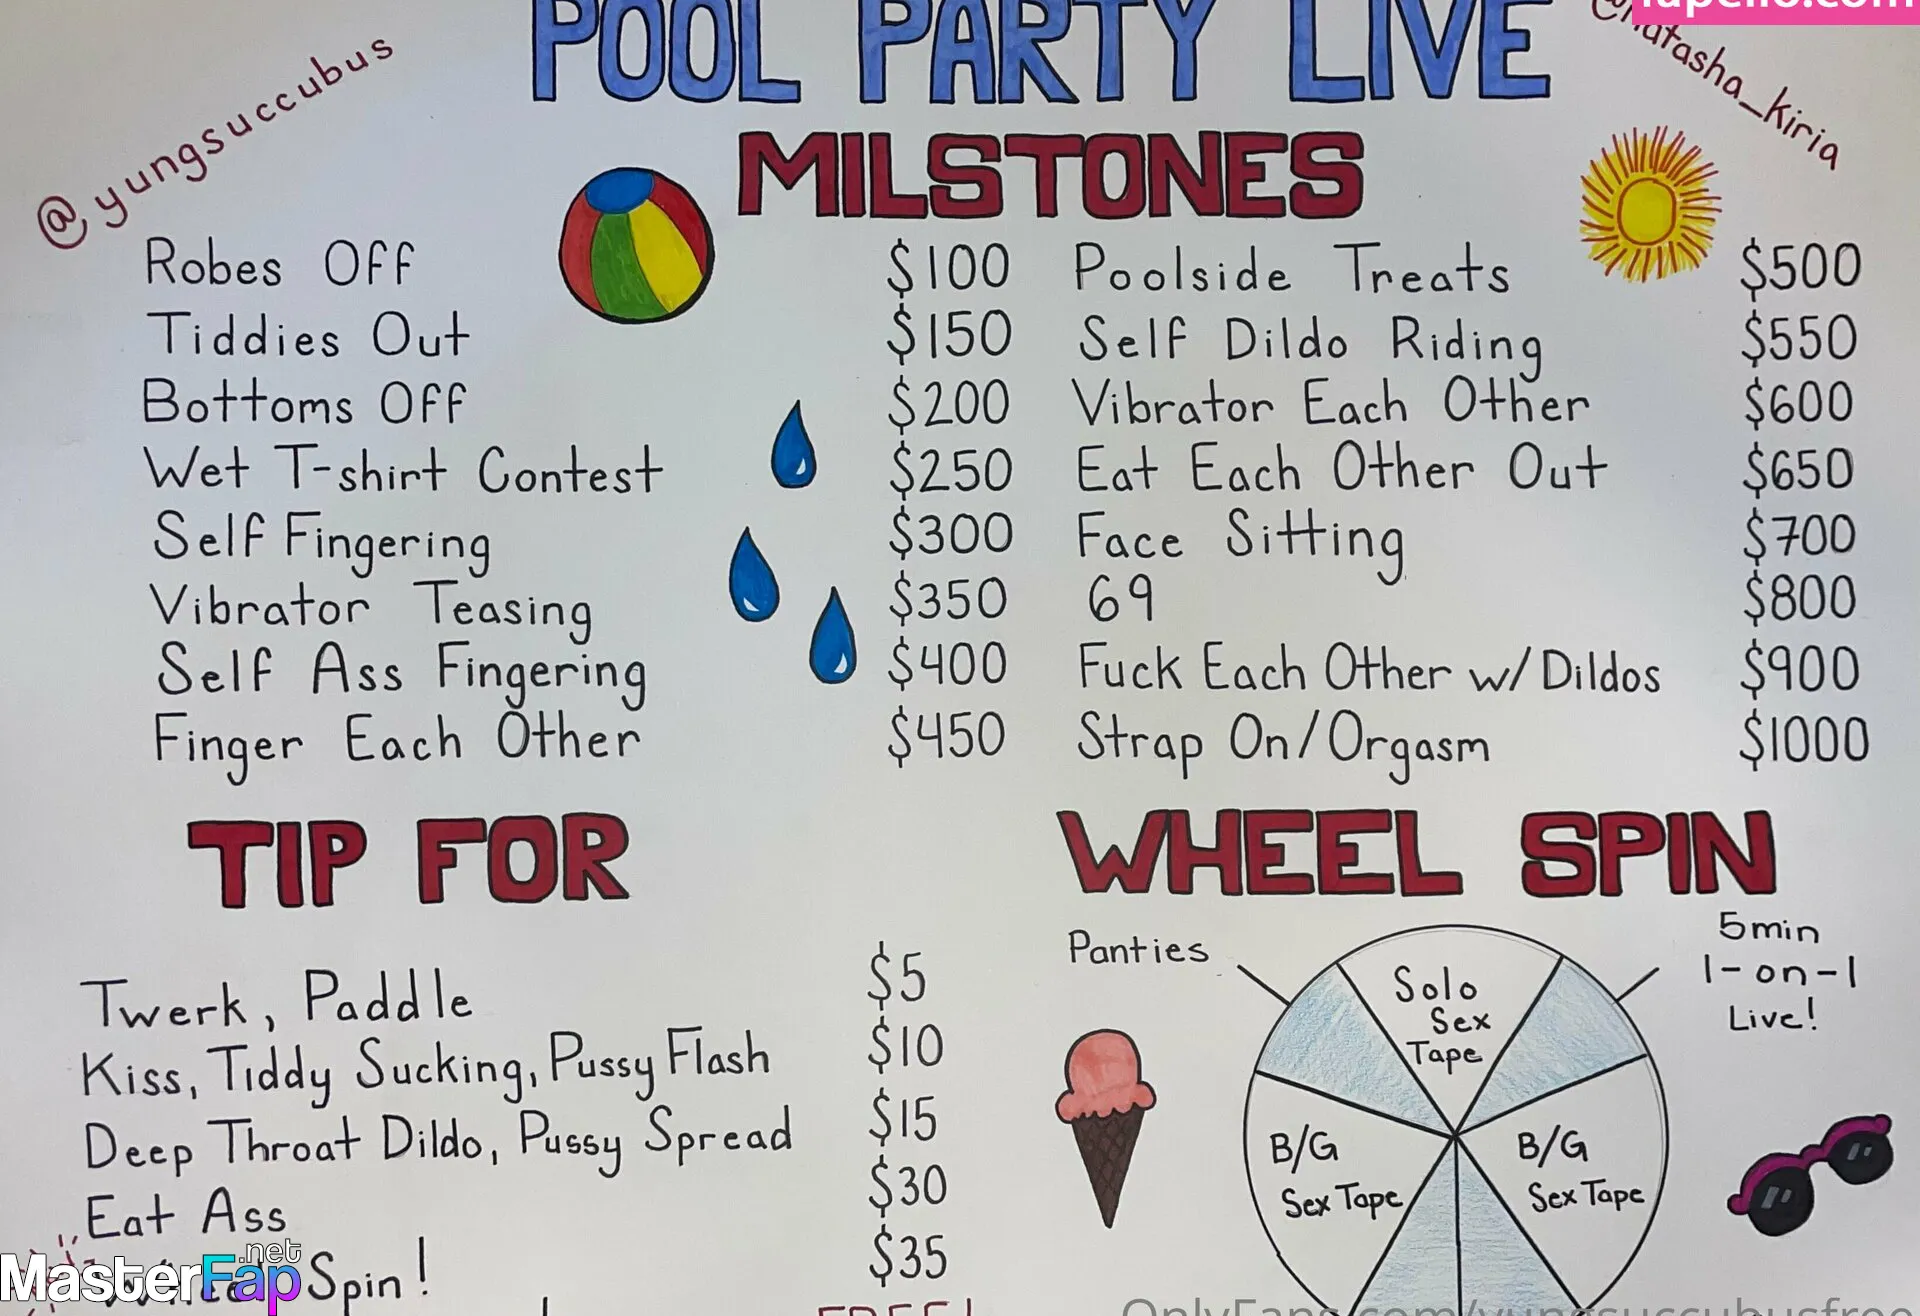 POOL PARTY LIVE
@yungsuccubus
@natasha_kiria
MILSTONES
Robes Off $100
Tiddies Out $150
Bottoms Off $200
Wet T-shirt Contest $250
Self Fingering $300
Vibrator Teasing $350
Self Ass Fingering $400
Finger Each Other $450
Poolside Treats $500
Self Dildo Riding $550
Vibrator Each Other $600
Eat Each Other Out $650
Face Sitting $700
69 $800
Fuck Each Other w/ Dildos $900
Strap On/Orgasm $1000
TIP FOR
Twerk, Paddle $5
Kiss, Tiddy Sucking, Pussy Flash $10
Deep Throat Dildo, Pussy Spread $15
Eat Ass $30
Wheel Spin! $35
FREE!
WHEEL SPIN
Panties
Solo
Sex
Tape
5min
1-on-1
Live!
B/G
Sex Tape
B/G
Sex Tape
MasterFap.net
OnlyFans.com/yungsuccubusfree
fapello.com